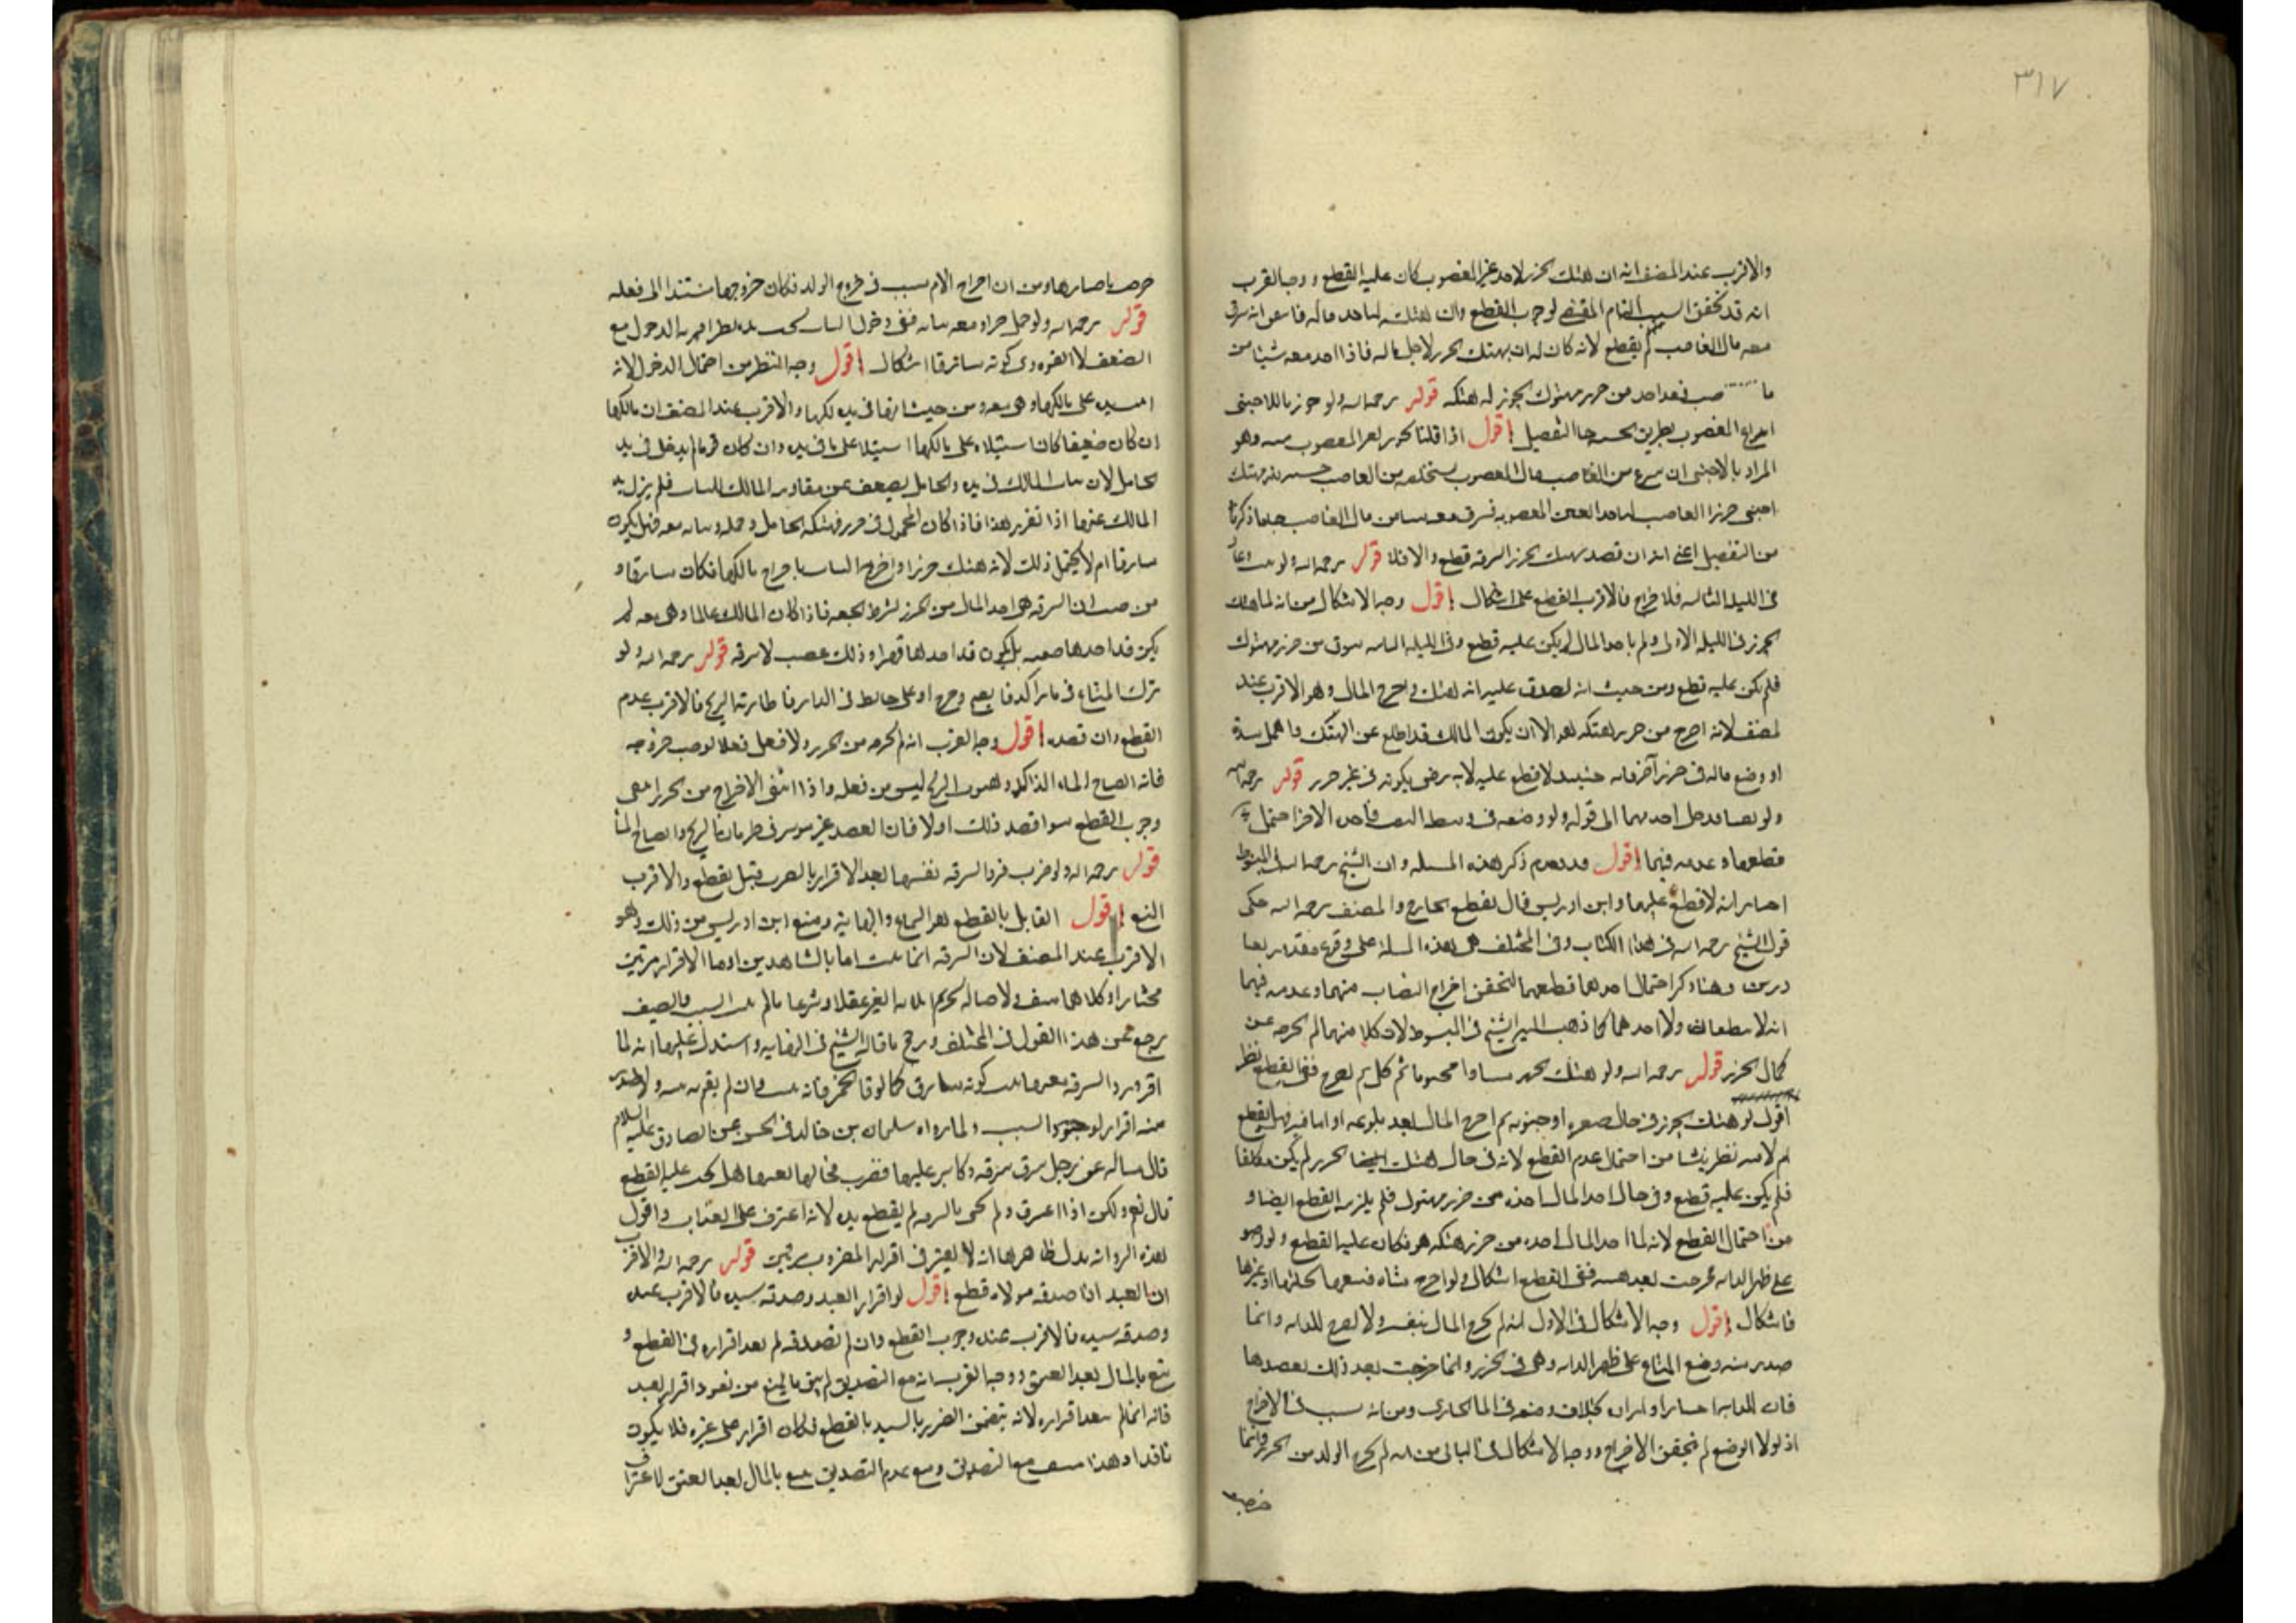 ٣١٧
والاقرب عند المصنف انه ان هتك الحرز لاخذ غير المغصوب كان عليه القطع ووجه القرب
انه قد تحقق السبب التام المقتضي لوجوب القطع وان هتكه لياخذ ماله
معه مال الغاصب لم يقطع لانه كان له ان يهتك الحرز لاجل ماله فاذا اخذ معه شيئا من
ما فقد اخذ من حرز مهتوك يجوز له هتكه قوله رحمه الله ولو جوزنا للاجنبى
اخراج المغصوب بطريق الحسبة جا التفصيل اقول اذا قلنا يجوز لغير المغصوب منه وهو
المراد بالاجنبى ان من الغاصب مال المغصوب من الغاصب
اجنبى حرز الغاصب لياخذ العين المغصوبة فسرق معه من مال الغاصب ما ذكرناه
من التفصيل اعنى انه ان قصد بهتك الحرز السرقه قطع والا فلا قوله رحمه الله ولو وعاد
فى الليلة الثانيه فالاقرب القطع على اشكال اقول وجه الاشكال من انه لما هتك
الحرز فى الليلة الاولى ولم ياخذ المال لم يكن عليه قطع وفى الليلة الثانيه سرق من حرز مهتوك
فلم يكن عليه قطع ومن حيث انه يصدق عليه انه هتك واخرج المال وهو الاقرب عند
المصنف لانه اخرج من حرز هتكه هو الا ان يكون المالك قد اطلع عن الهتك واهمل سده
او وضع ماله فى حرز آخر فانه حينئذ لا قطع عليه لانه رضى بكونه فى غير حرز قوله رحمه الله
ولو احدهما الى قوله ولو وضعه فى وسط النقب فاخذه الاخر احتمل
قطعهما وعدمه فيهما اقول وقد تقدم ذكر هذه المسله وان الشيخ رحمه الله فى المبسوط
اختار انه لا قطع عليهما وابن ادريس قال بقطع الخارج والمصنف رحمه الله حكى
قول الشيخ رحمه الله فى هذا الكتاب وفى المختلف هذه المسلة على وقوع
وهنا ذكر احتمال احدهما قطعهما لتحقق اخراج النصاب منهما وعدمه فيهما
انه لا ولا احدهما كما ذهب اليه الشيخ فى المبسوط لان كلا منهما لم يخرجه عن
كمال الحرز قوله رحمه الله ولو هتك الحرز صبيا او مجنونا ثم كمل ثم اخرج ففى القطع نظر
اقول لو هتك الحرز فى حال صغره او جنونه ثم اخرج المال بعد بلوغه او افاقته فهل يقطع
ام لا فيه نظر ينشا من احتمال عدم القطع لانه فى حال هتك الحرز لم يكن مكلفا
فلم يكن عليه قطع وفى حال اخذ المال اخذه من حرز مهتوك فلم يلزمه القطع ايضا و
من احتمال القطع لانه لما اخذ المال اخذه من حرز هتكه هو فكان عليه القطع ولو وضعه
على ظهر الدابه فخرجت بعد هنيئه ففى القطع اشكال ولو اخرج شاه فتبعها سخلتها او غيرها
فاشكال اقول وجه الاشكال فى الاول انه لم يخرج المال بنفسه ولا اخرج الدابه وانما
صدر منه وضع المتاع على ظهر الدابه وهى فى الحرز وانما خرجت بعد ذلك بقصدها
فان للدابه اختيارا بخلاف وضعه فى الماء الجارى ومن انه سبب فى الاخراج
اذ لولا الوضع لم يتحقق الاخراج ووجه الاشكال فى الثانى من انه لم يخرج الولد من الحرز وانما
باختيارها ومن ان اخراج الام سبب فى خروج الولد فكان خروجها مستندا الى فعله
قوله رحمه الله ولو حمل حرا ومعه ثيابه ففى دخول الثياب تحت يده نظر اقربه الدخول مع
الضعف لا القوه وفى كونه سارقا اشكال اقول وجه النظر من احتمال الدخول لانه
على مالكها وهى معه ومن حيث انها فى يد مالكها والاقرب عند المصنف ان مالكها
ان كان ضعيفا كان استيلاءه على مالكها استيلاء على ما فى يده وان كان قويا لم يدخل فى يد
الحامل لان ثياب المالك فى يده والحامل يضعف عن مقاومه المالك للثياب فلم يزل يد
المالك عنها اذا تقرر هذا فاذا كان المحمول فى حرز فهتكه الحامل وحمله وثيابه معه فهل يكون
سارقا ام لا يحتمل ذلك لانه هتك حرزا واخرج الثياب باخراج مالكها فكان سارقا و
من حيث ان السرقه هى اخذ المال من الحرز بشرط فاذا كان المالك عالما وهى معه لم
يكن قد اخذها خفيه بل يكون قد اخذها قهرا وذلك غصب لا سرقه قوله رحمه الله ولو
ترك المتاع فى ماء راكد وخرج او على حايط فى الدار فاطارته الريح فالاقرب عدم
القطع وان قصده اقول وجه القرب انه لم يخرجه من الحرز ولا فعل فعلا يوجب خروجه
فان انفتاح الماء الراكد وهبوب الريح ليس من فعله واذا انتفى الاخراج من الحرز انتفى
وجوب القطع سواء قصد ذلك اولا فان القصد غير موثر فى الريح وانفتاح الماء
قوله رحمه الله ولو ضرب فرد السرقه نفسها بعد الاقرار بالضرب قيل يقطع والاقرب
المنع اقول القايل بالقطع هو الشيخ والنهاية ومنع ابن ادريس من ذلك وهو
الاقرب عند المصنف لان السرقه انما تثبت اما بالشاهدين او بالاقرار مرتين
مختارا وكلاهما منتف ولاصاله تحريم الغير عقلا وشرعا ما لم السبب والمصنف
رجع عن هذا القول فى المختلف ورجح ما قاله الشيخ فى النهايه واستدل عليه انه لما
اقر ورد السرقه بعينها ثبت كونه سارق كما لو قاء الخمر فانه وان لم يقم بينه ولا صدر
منه اقرار لوجود السبب ولما رواه سليمان بن خالد فى الحسن عن الصادق عليه السلام
قال سالته عن رجل سرق سرقه وكابر عليها فضرب فجا بها بعينها هل يجب عليه القطع
قال نعم ولكن اذا اعترف ولم يجى بالسرقه لم يقطع يده لانه اعترف على العذاب واقول
هذه الروايه يدل ظاهرها انه لا يعتبر فى اقرار المضروب مرتين قوله رحمه الله والاقرب
ان العبد اذا صدقه مولاه قطع اقول لو اقر العبد وصدقه سيده فالاقرب عنده
وصدقه سيده فالاقرب عنده وجوب القطع وان لم يصدقه لم ينفذ اقراره فى القطع و
يتبع بالمال بعد العتق ووجه القرب انه مع التصديق لم يبق مانع من نفوذ اقرار العبد
فانه انما لم ينفذ اقراره لانه يتضمن الضرر بالسيد بالقطع فكان اقرار على غيره فلا يكون
نافذا وهذا منتف مع التصديق ومع عدم التصديق يتبع بالمال بعد العتق لاعترافه